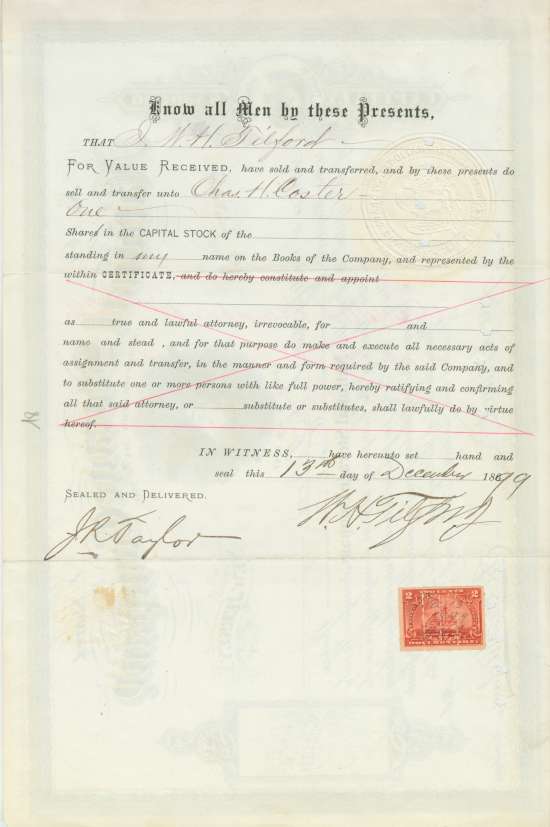 Know all Men by these Presents,
THAT I W. H. Tilford
FOR VALUE RECEIVED, have sold and transferred, and by these presents do
sell and transfer unto Chas. H. Coster
One
Shares in the CAPITAL STOCK of the
standing in my name on the Books of the Company, and represented by the
within CERTIFICATE, and do hereby constitute and appoint
as true and lawful attorney, irrevocable, for and
name and stead , and for that purpose do make and execute all necessary acts of
assignment and transfer, in the manner and form required by the said Company, and
to substitute one or more persons with like full power, hereby ratifying and confirming
all that said attorney, or substitute or substitutes, shall lawfully do by virtue
hereof.
IN WITNESS, have hereunto set hand and
seal this 13th day of December 1899
SEALED AND DELIVERED.
W. H. Tilford
J R Taylor
2 2